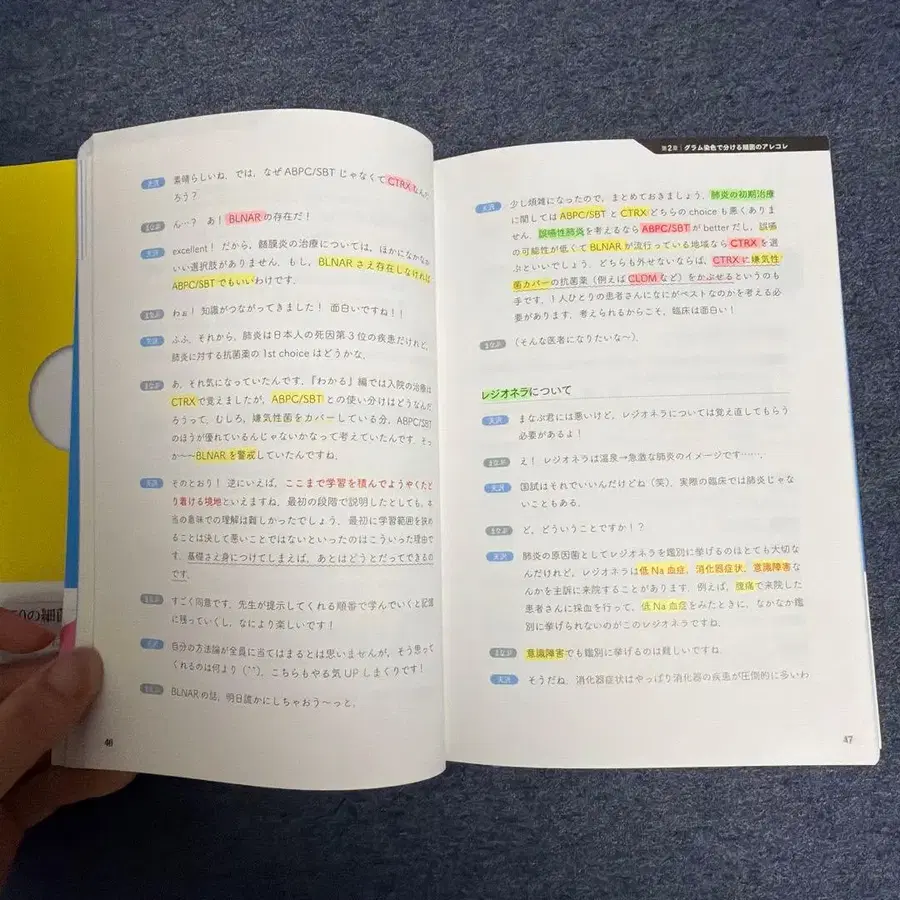 素晴らしいね。では、なぜ ABPC/SBT じゃなくて CTRX なんだ
ろう？
まなぶ ん…？ あ！ BLNAR の存在だ！
天沢 excellent！ だから、髄膜炎の治療については、ほかになかなか
いい選択肢がありません。もし、BLNAR さえ存在しなければ
ABPC/SBT でもいいわけです。
まなぶ わぁ！ 知識がつながってきました！ 面白いですね！！
天沢 ふふ。それから、肺炎は日本人の死因第 3 位の疾患だけれど、
肺炎に対する抗菌薬の 1st choice はどうかな。
まなぶ あ、それ気になっていたんです。『わかる』編では入院の治療は
CTRX で覚えましたが、ABPC/SBT との使い分けはどうなんだ
ろうって。むしろ、嫌気性菌をカバーしている分、ABPC/SBT
のほうが優れているんじゃないかなって考えていたんです。そっ
か〜〜BLNAR を警戒していたんですね。
天沢 そのとおり！ 逆にいえば、ここまで学習を積んでようやくたど
り着ける境地といえますね。最初の段階で説明したとしても、本
当の意味での理解は難しかったでしょう。最初に学習範囲を狭め
ることは決して悪いことではないといったのはこういった理由で
す。基礎さえ身につけてしまえば、あとはどうとだってできるの
です。
まなぶ すごく同意です。先生が提示してくれる順番で学んでいくと記憶
に残っていくし、なにより楽しいです！
天沢 自分の方法論が全員に当てはまるとは思いませんが、そう思って
くれるのは何より（^^）。こちらもやる気 UP しまくりです！
まなぶ BLNAR の話、明日誰かにしちゃおう〜っと。
46
第2章 グラム染色で分ける細菌のアレコレ
天沢 少し煩雑になったので、まとめておきましょう。肺炎の初期治療
に関しては ABPC/SBT と CTRX どちらの choice も悪くありま
せん。誤嚥性肺炎を考えるなら ABPC/SBT が better だし、誤嚥
の可能性が低くて BLNAR が流行っている地域なら CTRX を選
ぶといいでしょう。どちらも外せないならば、CTRX に嫌気性
菌カバーの抗菌薬（例えば CLDM など）をかぶせるというのも
手です。1 人ひとりの患者さんになにがベストなのかを考える必
要があります。考えられるからこそ、臨床は面白い！
まなぶ （そんな医者になりたいな〜）。
レジオネラについて
天沢 まなぶ君には悪いけど、レジオネラについては覚え直してもらう
必要があるよ！
まなぶ え！ レジオネラは温泉→急激な肺炎のイメージです……。
天沢 国試はそれでいいんだけどね（笑）。実際の臨床では肺炎じゃな
いこともある。
まなぶ ど、どういうことですか！？
天沢 肺炎の原因菌としてレジオネラを鑑別に挙げるのはとても大切な
んだけれど、レジオネラは低 Na 血症、消化器症状、意識障害な
んかを主訴に来院することがあります。例えば、腹痛で来院した
患者さんに採血を行って、低 Na 血症をみたときに、なかなか鑑
別に挙げられないのがこのレジオネラですね。
まなぶ 意識障害でも鑑別に挙げるのは難しいですね。
天沢 そうだね。消化器症状はやっぱり消化器の疾患が圧倒的に多いわ
47